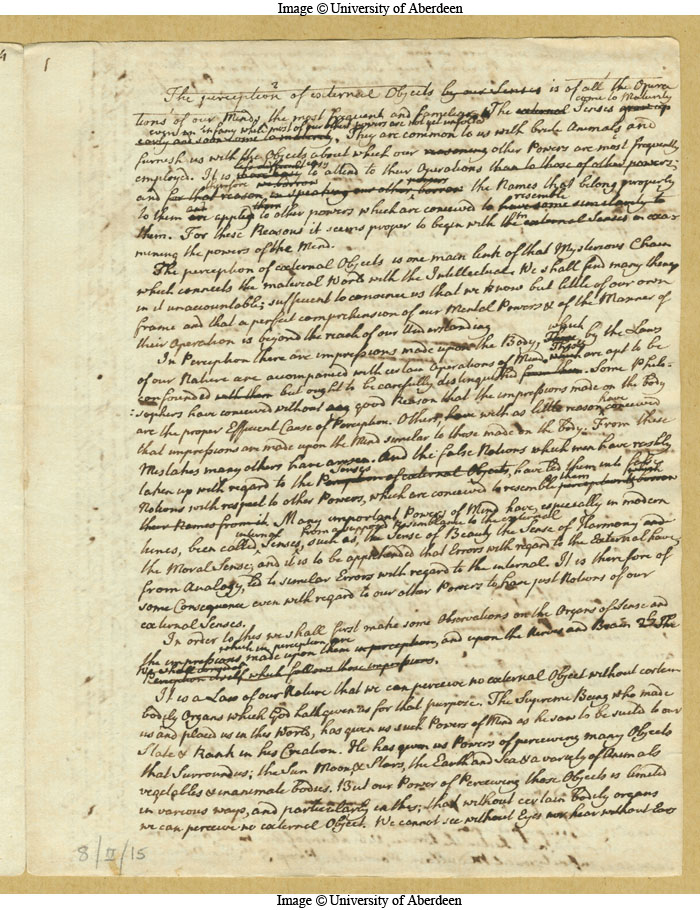 Image © University of Aberdeen
1
The perception of external Objects by our Senses is of all the Opera
come to Maturity
tions of our Mind, the most frequent and familiar. The external Senses
even in infancy when most of our other powers are not yet unfolded
They are common to us with brute Animals and
furnish us with the Objects about which our reasoning other Powers are most frequently
employed. It is to attend to their Operations than to those of other powers;
and for that reason, in speaking our other borrow the Names that belong properly
to them are applied to other powers which are conceived to have some similarity to
resemble
them. For these Reasons it seems proper to begin with the external Senses in exa
mining the powers of the Mind.
The perception of external Objects is one main link of that Mysterious Chain
which connects the material World with the Intellectual. We shall find many things
in it unaccountable; sufficient to convince us that we know but little of our own
frame and that a perfect comprehension of our Mental Powers & of the Manner of
their Operation is beyond the reach of our Understanding
In Perception there are impressions made upon the Body, which by the Laws
of our Nature are accompanied with certain Operations of Mind. These are apt to be
confounded with them but ought to be carefully distinguished from them. Some Philo-
sophers have conceived without any good Reason that the impressions made on the Body
are the proper Efficient Cause of Perception. Others, have with as little reason have conceived
that impressions are made upon the Mind similar to those made on the Body. From these
Mistakes many others have arisen. And the false Notions which men have rashly
taken up with regard to the Senses Perception of external Objects, have led them into false
Notions with respect to other Powers, which are conceived to resemble them
their Names from it. Many important Powers of Mind have, especially in modern
internal from a supposed resemblance to the external
times, been called Senses, such as, the Sense of Beauty the Sense of Harmony and
the Moral Sense, and it is to be apprehended that Errors with regard to the External have,
from Analogy, led to similar Errors with regard to the internal. It is therefore of
some Consequence even with regard to our other Powers to have just Notions of our
external Senses.
In order to this we shall first make some Observations on the Organs of Sense and
which in perception are
the impressions made upon them in perception, and upon the Nerves and Brain. The
Perception itself which follows those impressions.
It is a Law of our Nature that we can perceive no external Object without certain
bodily Organs which God hath given us for that purpose. The Supreme Being who made
us and placed us in this World, has given us such Powers of Mind as he saw to be suited to our
State & Rank in his Creation. He has given us Powers of perceiving many Objects
that Surround us; the Sun Moon & Stars, the Earth and Sea & a variety of Animals
vegetables & inanimate bodies. But our Power of Perceiving those Objects is limited
in various ways, and particularly in this; that without certain bodily organs
we can perceive no external Object. We cannot see without Eyes nor hear without Ears
8/II/15
Image © University of Aberdeen